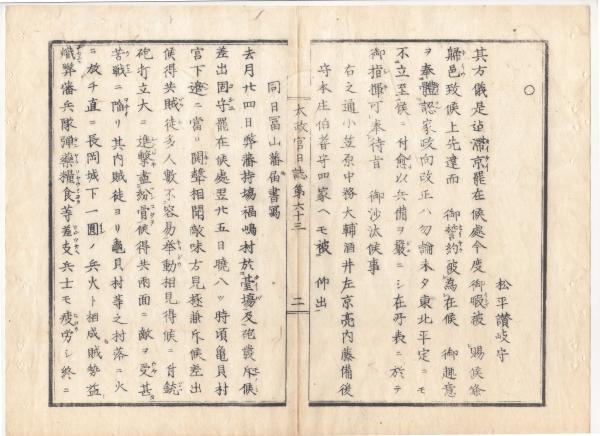 ○
松平讃岐守
其方儀是迠滞京罷在候處今度御暇被 賜候条
歸邑致候上先達而 御誓約被為在候 御趣意
ヲ奉體認家政向改正ハ勿論未タ東北平定ニモ
不立至候ニ付愈以兵備ヲ嚴ニシ在所表ニ於テ
御指揮可奉待旨 御沙汰候事
右之通小笠原中務大輔酒井左京亮内藤備後
守本庄伯耆守四家ヘモ被 仰出
太政官日誌第六十三
二
同日冨山藩届書冩
去月廿四日弊藩持場福嶋村於臺場及砲發斥候
差出固守罷在候處翌廿五日曉八ッ時頃亀貝村
宮下邊ニ當リ閧聲相聞敵味方見極兼斥候差出
候得共賊徒多人數不容易挙動相見得候ニ付銃
砲打立大ニ進撃盡紛骨候得共両面ニ敵ヲ受甚
苦戰ニ陷リ其内賊徒ヨリ亀貝村等之村落ニ火
ヲ放チ直ニ長岡城下一圓ノ兵火ト相成賊勢益
熾弊藩兵隊弾藥糧食等差支兵士モ疲労シ終ニ